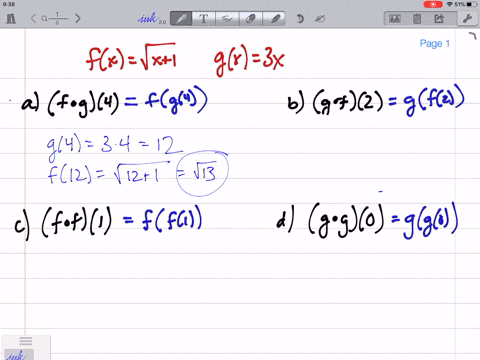 9:38
51%
1
6
ink 2.0
T
Page 1
f(x) = √x+1 g(x) = 3x
a) (f∘g)(4) = f(g(4))
b) (g∘f)(2) = g(f(2))
g(4) = 3·4 = 12
f(12) = √12+1 = √13
c) (f∘f)(1) = f(f(1))
d) (g∘g)(0) = g(g(0))
ink